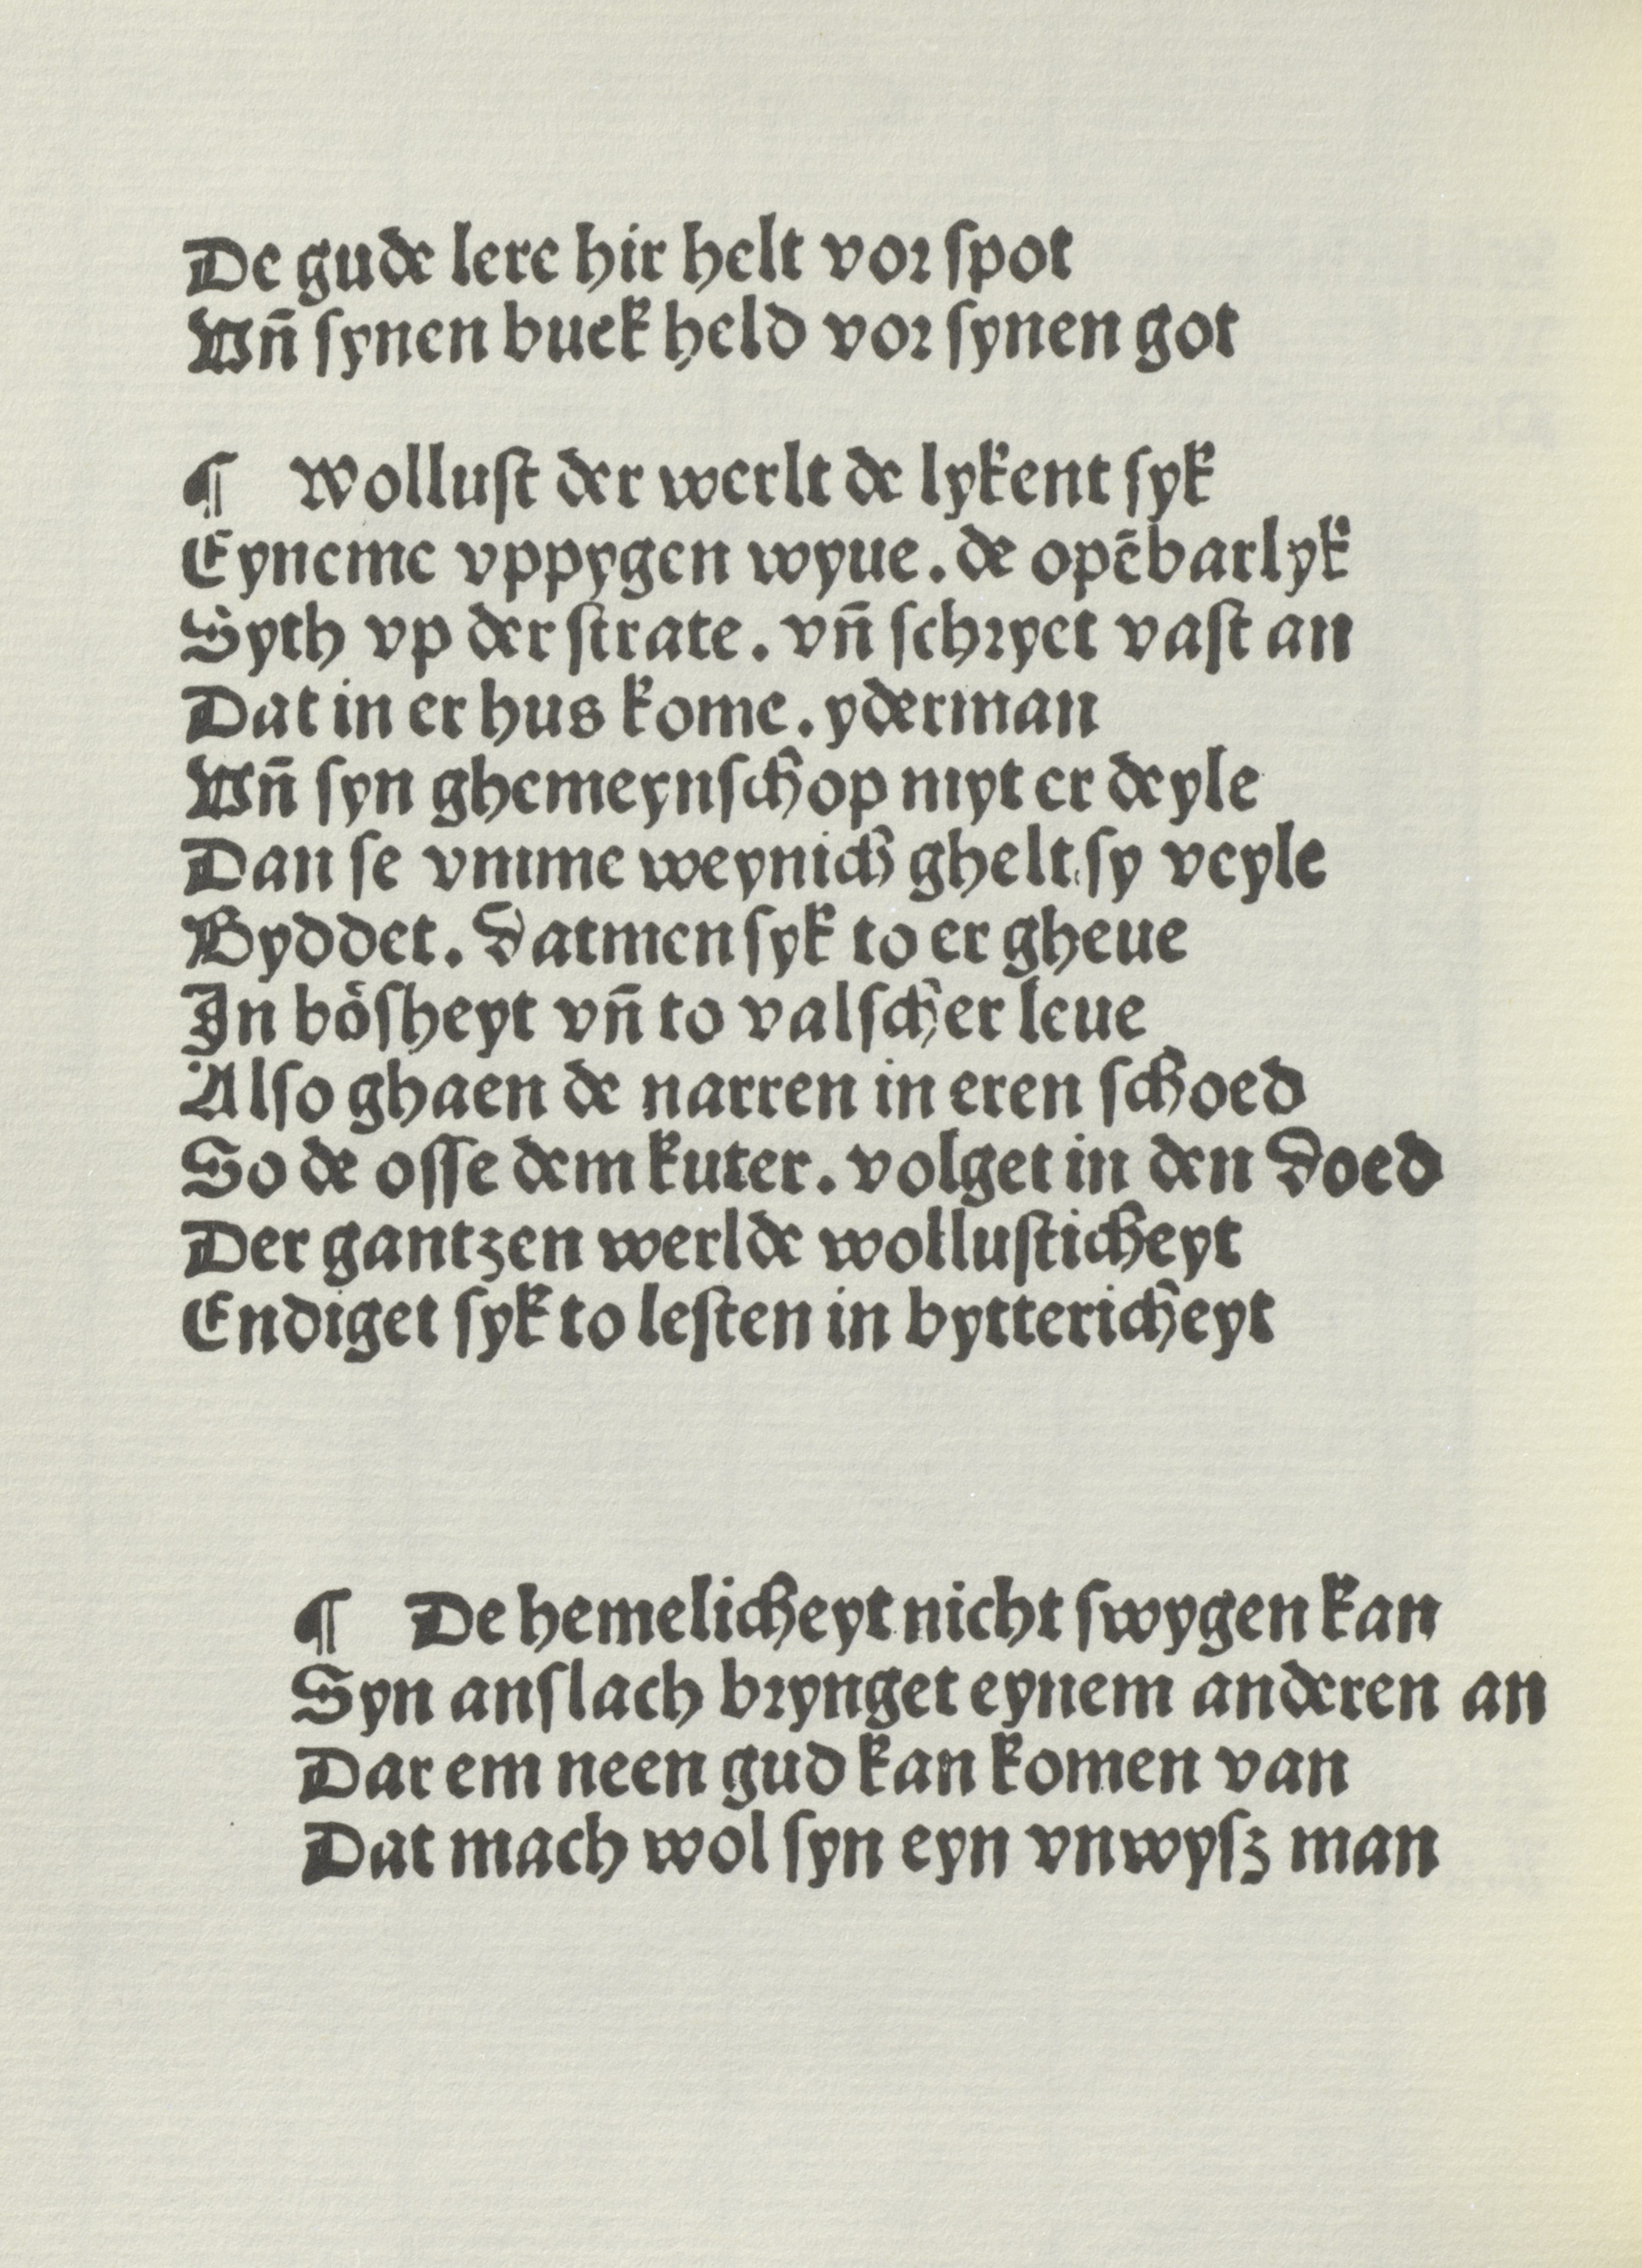 De gude lere hir helt vor ſpot
Vn̄ ſynen buek held vor ſynen got
¶ Wolluſt der werlt de lykent ſyk
Eyneme vppygen wyue. de opēbarlyk
Syth vp der ſtrate. vn̄ ſchryet vaſt an
Dat in er hus kome. yderman
Vn̄ ſyn ghemeynſchop myt er deyle
Dan ſe vmme weynich ghelt ſy veyle
Byddet. Datmen ſyk to er gheue
In böſheyt vn̄ to valſcher leue
Alſo ghaen de narren in eren ſchoed
So de oſſe dem kuter. volget in den Doed
Der gantzen werlde wolluſticheyt
Endiget ſyk to leſten in byttericheyt
¶ De hemelicheyt nicht ſwygen kan
Syn anſlach brynget eynem anderen an
Dar em neen gud kan komen van
Dat mach wol ſyn eyn vnwyſz man